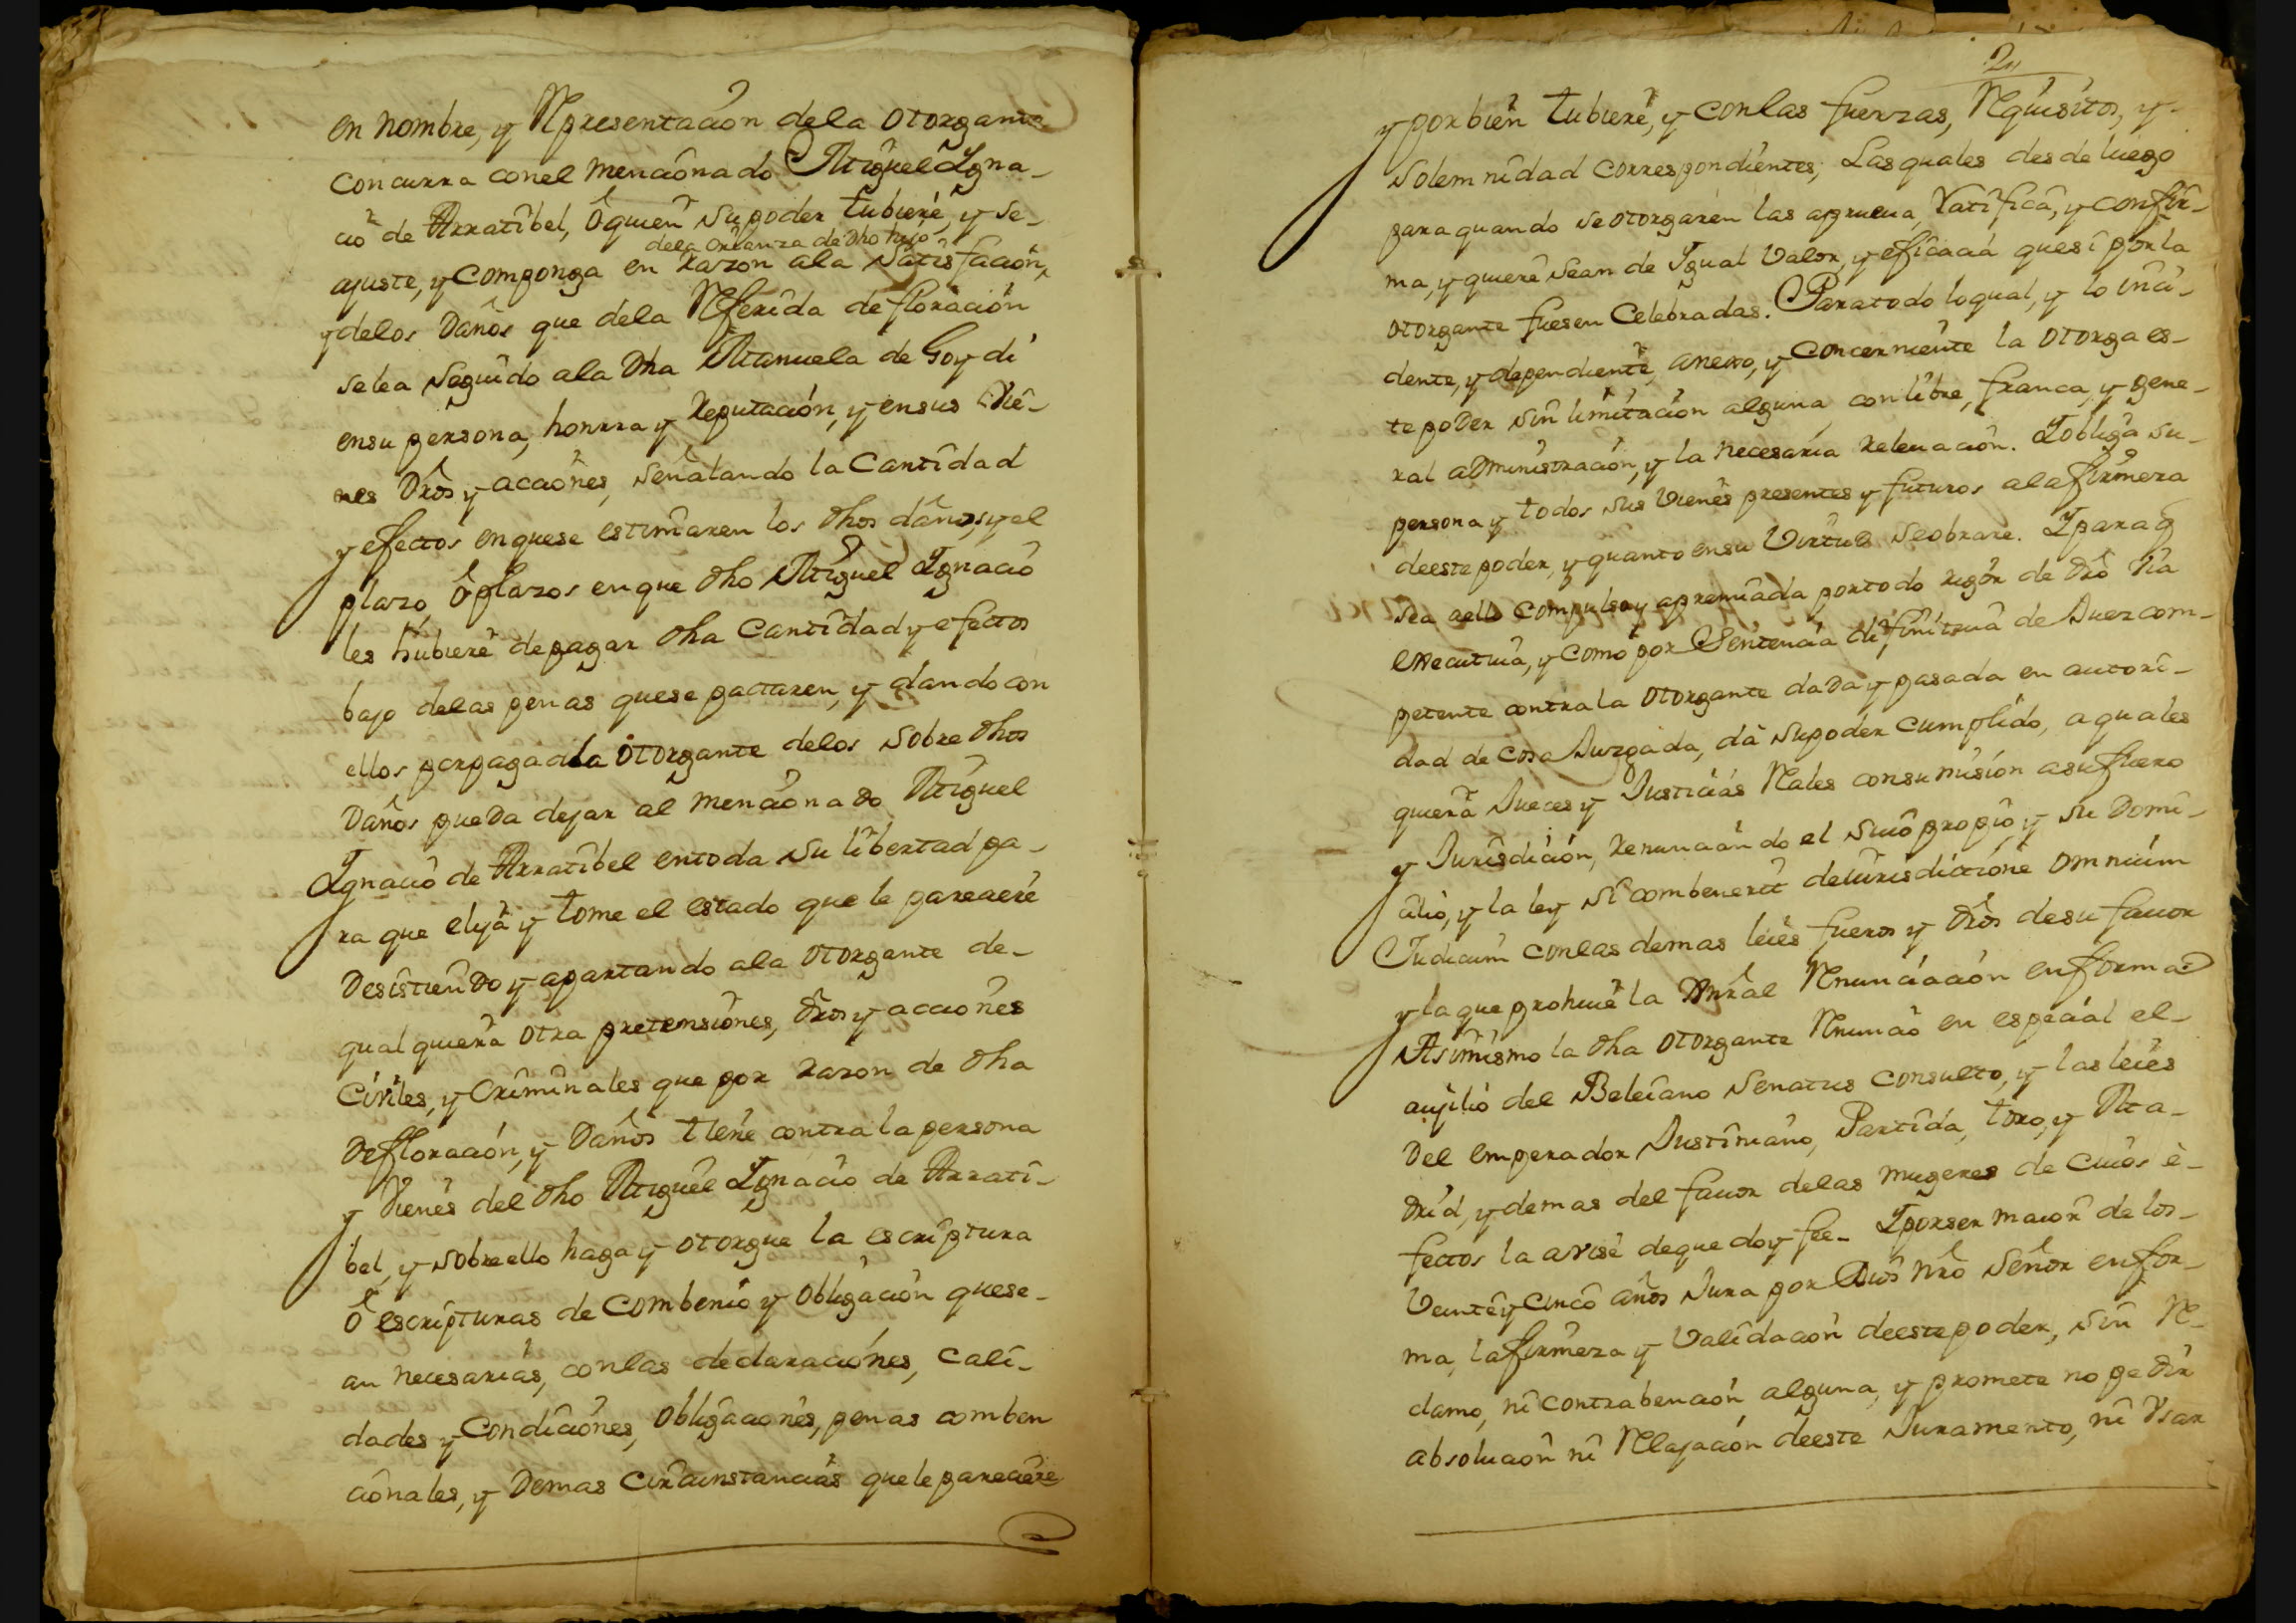 en nombre, y Representacion dela otorgante
concurra conel mencionado Miguel Igna-
cio de Arratibel, ô quien su poder tubiere, y se
dela crianza de dho hijo
ajuste, y componga en razon ala Satisfacion,
y delos Daños que dela Referida defloracion
selea seguido ala Dha Manuela de Goydi
ensu persona, honrra y Reputacion, y ensus Vie-
nes Dros y acciones, señalando la Cantidad
y efectos enquese estimaren los dhos daños, y el
plazo, ô plazos enque dho Miguel Ignacio
les hubiere depagar dha Cantidad y efectos
bajo delas penas quese pactaren, y dando con
ellos por pagada la otorgante delos sobre dhos
Daños pueda dejar al mencionado Miguel
Ignacio de Arratibel entoda su libertad pa-
ra que elija y tome el estado que le pareciere
Desistiendo y apartando ala otorgante de-
qualquiera otra pretensiones, dros y acciones
Civiles, y Criminales que por razon de dha
Defloracion, y Daños tiene contra la persona
y Vienes del dho Miguel Ignacio de Arrati-
bel, y sobreello haga y otorgue la escriptura
ô escripturas de Combenio y obligacion quese-
an necesarias, conlas declaraciones, cali-
dades y Condiciones, obligaciones, penas comben
cionales, y Demas Circunstancias quele pareciere
2
y porbien tubiere, y conlas fuerzas, Requisitos, y
solemnidad correspondientes; Lasquales desde luego
para quando se otorgaren las aprueua, Ratifica, y confir-
ma, y quiere sean de Igual Valor, y eficacia quesi porla
otorgante fuesen Celebradas. Paratodo loqual, y lo inci-
dente, y dependiente, anexo, y concerniente la otorga es-
te poder sin limitacion alguna, con libre, franca, y gene-
ral administracion, y la necesaria releuacion. Y obliga su
persona y todos sus Vienes presentes y futuros ala firmeza
deeste poder, y quanto ensu Virtud se obrare. Y para q
sea aello compulsa y apremiada portodo rigor de dro Via
executiua, y como por Sentencia difinitiua de Juez com-
petente contra la otorgante dada y pasada en autori-
dad de cosa Juzgada, dâ su poder cumplido, a quales
quiera Jueces y Justicias Reales consumision asu fuero
y Jurisdicion, Renunciando el suio propio, y su Domi-
cilio, y la ley Si combenerit de iurisdictione omnium
Judicum conlas demas leies fueros y dros desu fauor
y la que prohiue la Genral Renunciacion enforma
Asimismo la dha otorgante Renuncio en especial el
auxilio del Beleiano Senatus Consulto, y las leies
Del emperador Justiniano, Partida, toro, y Ma-
drid, y demas del fauor delas mugeres de cuios e-
fectos la avisé deque doy fee_ Y porser maior de los
Veinte y cinco años Jura por Dios nro Señor enfor-
ma, la firmeza y Validacion deeste poder, sin Re-
clamo, ni contrabencion alguna, y promete no pedir
absolucion ni Relajacion deeste Juramento, ni Vsar